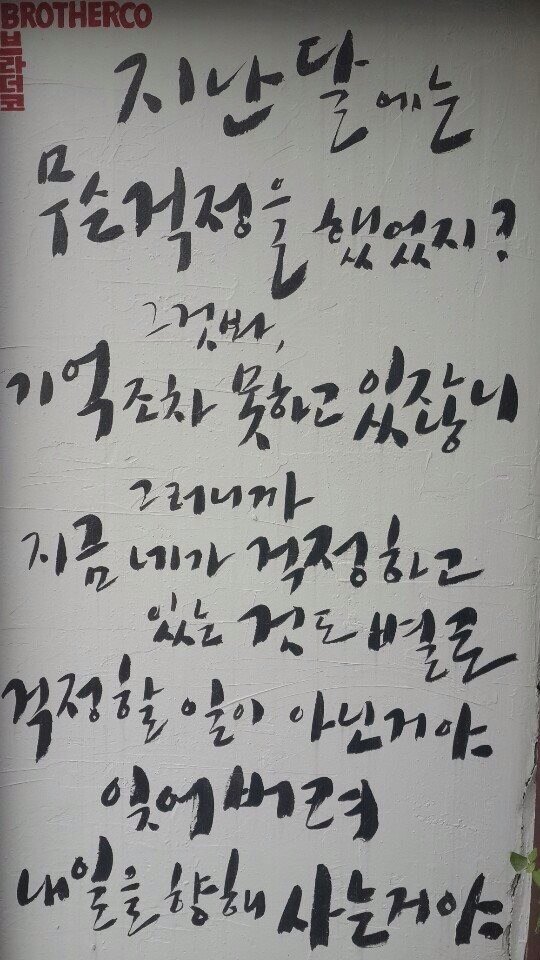 BROTHERCO
브라더코
지난달에는
무슨걱정을 했었지?
그것봐,
기억조차 못하고 있잖니
그러니까
지금 네가 걱정하고
있는 것도 별로
걱정할 일이 아닌거야
잊어버려
내일을 향해 사는거야